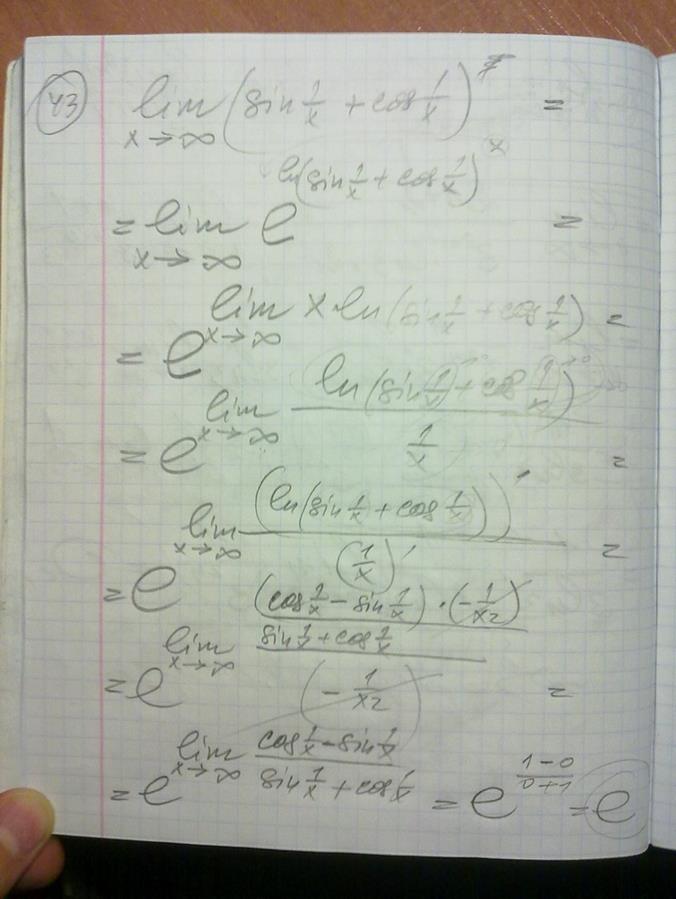 43
lim x→∞ (sin 1/x + cos 1/x)^x =
= lim x→∞ e^(ln(sin 1/x + cos 1/x)^x) =
= e^(lim x→∞ x ln(sin 1/x + cos 1/x)) =
= e^(lim x→∞ ln(sin 1/x + cos 1/x) / (1/x)) =
= e^(lim x→∞ (ln(sin 1/x + cos 1/x))' / (1/x)') =
= e^(lim x→∞ ((cos 1/x - sin 1/x) · (-1/x2) / (sin 1/x + cos 1/x)) / (-1/x2)) =
= e^(lim x→∞ (cos 1/x - sin 1/x) / (sin 1/x + cos 1/x)) = e^((1-0)/(0+1)) = e